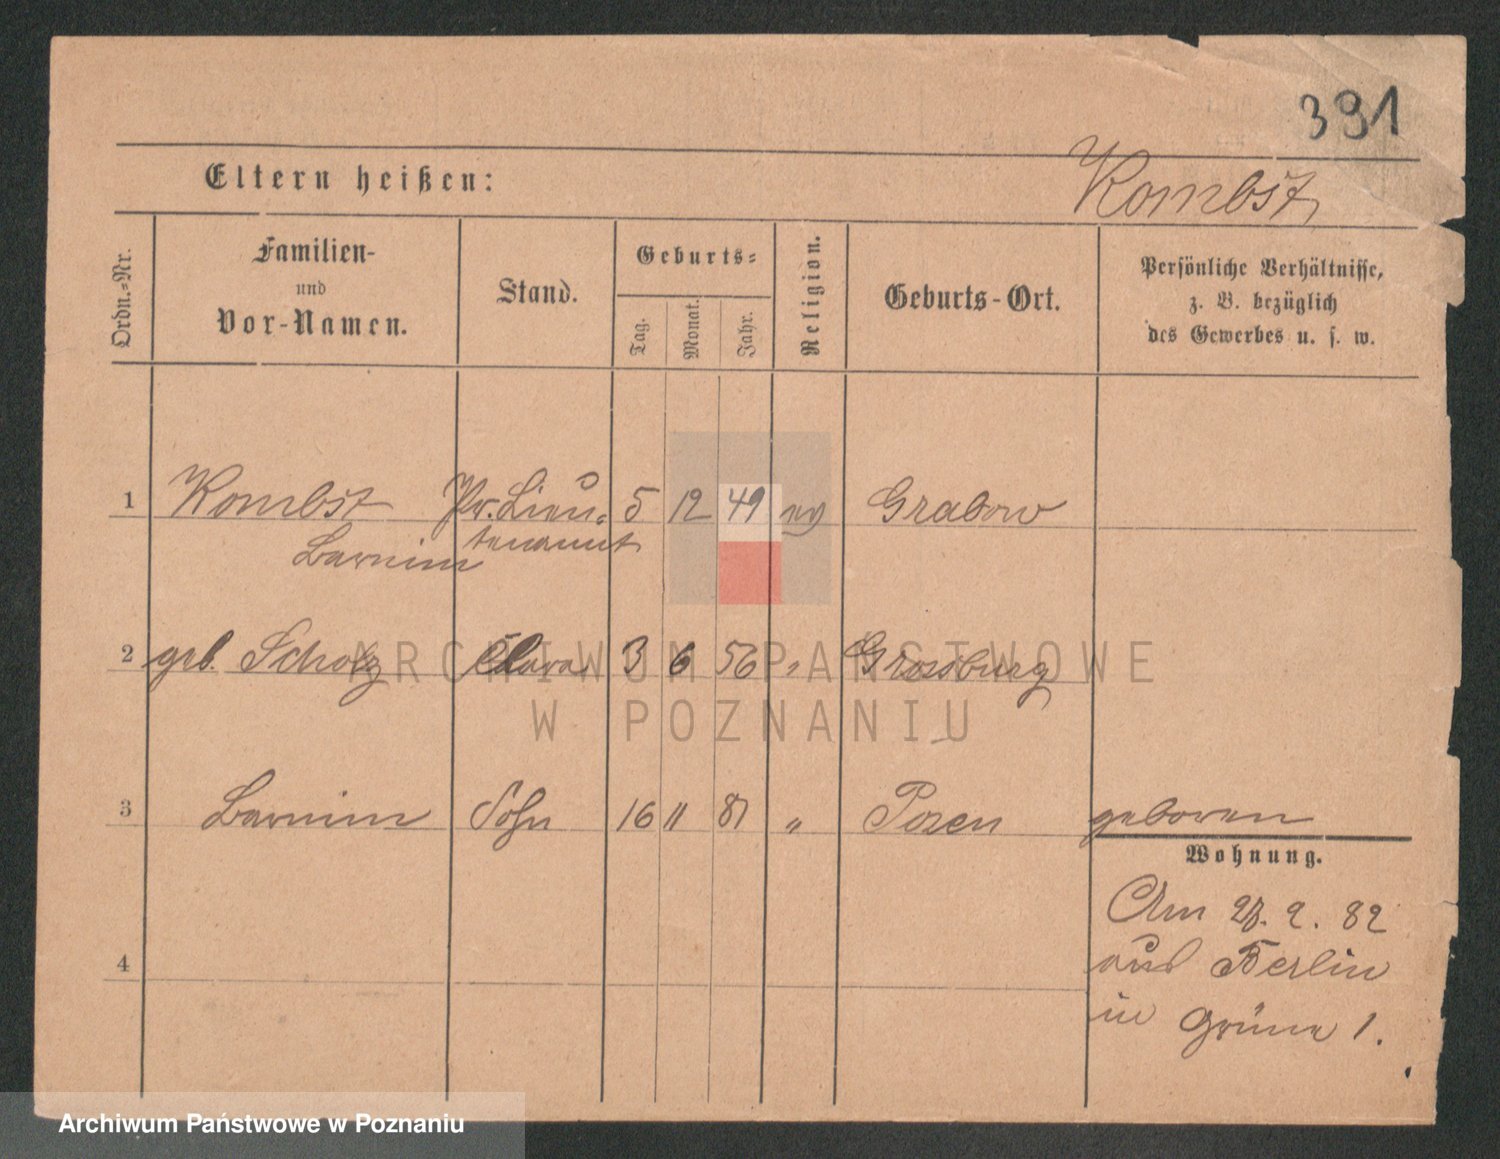 391
Eltern heißen:
Kombst
Ordn.-Nr.
Familien-
und
Vor-Namen.
Stand.
Geburts-
Tag.
Monat.
Jahr.
Religion.
Geburts-Ort.
Persönliche Verhältnisse,
z. B. bezüglich
des Gewerbes u. s. w.
1 Kombst Pr. Lieu- 5 12 49 ev Grabow
Barnim tenannt
2 geb. Scholz Clara 3 6 56 " Grossburg
3 Barnim Sohn 16 11 81 " Posen geboren
Wohnung.
Am 9. 82
aus Berlin
in Grüne 1.
4
ARCHIWUM PAŃSTWOWE
W POZNANIU
Archiwum Państwowe w Poznaniu